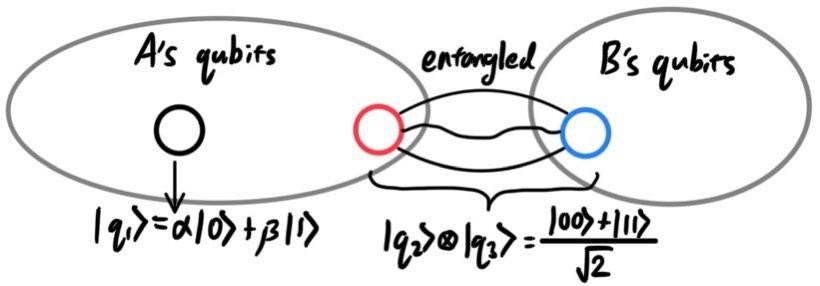 A's qubits
entangled
B's qubits
|q₁⟩=α|0⟩+β|1⟩
|q₂⟩⊗|q₃⟩=|00⟩+|11⟩/√2